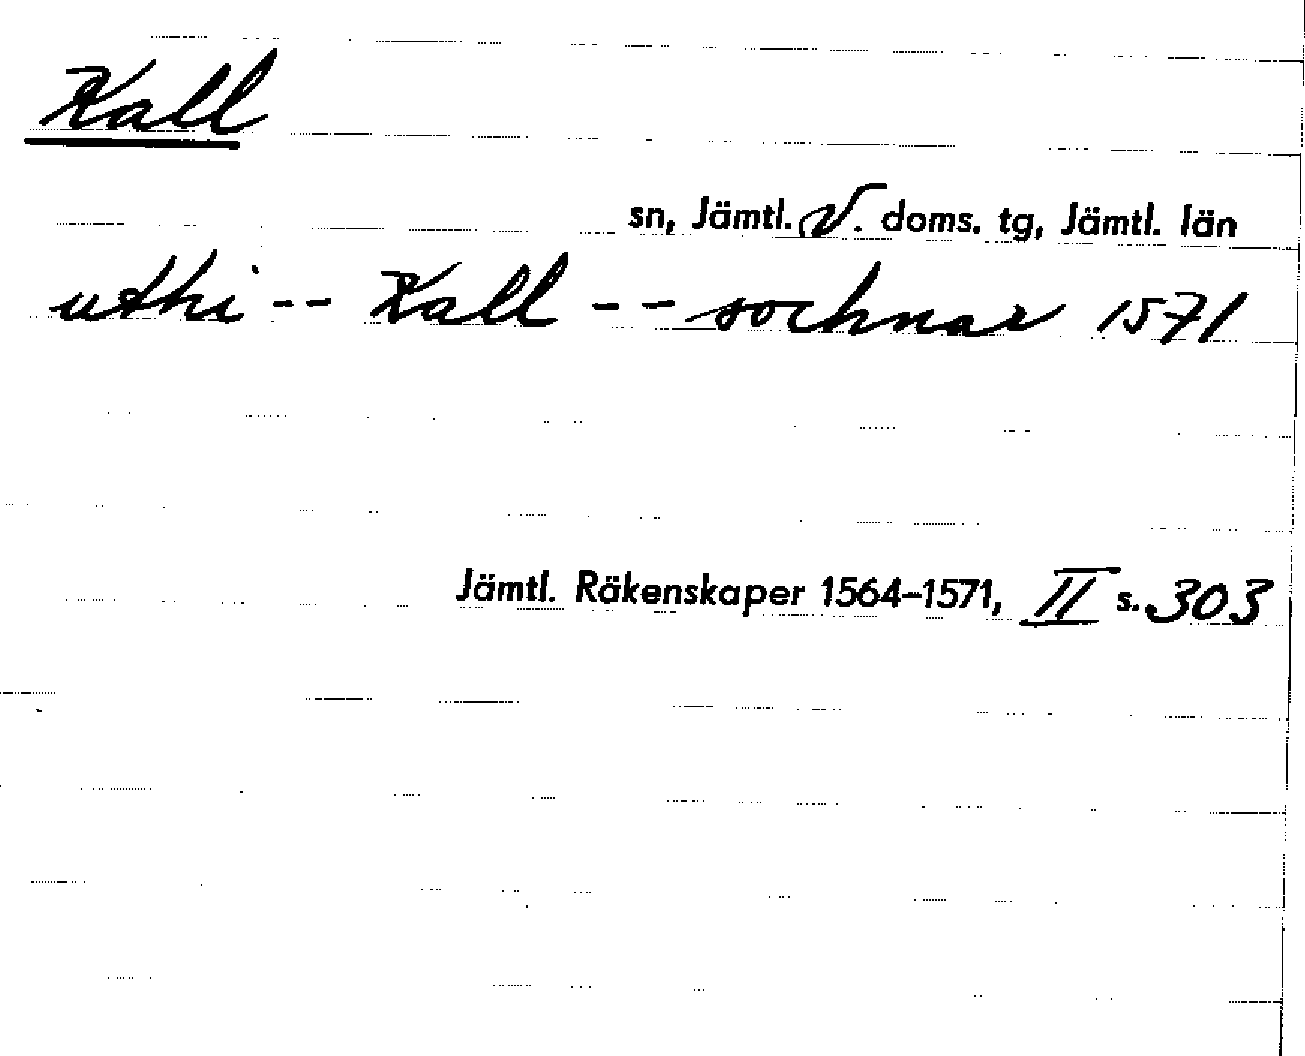 Kall
sn, Jämtl. V. doms. tg, Jämtl. län
uthi -- Kall -- sochnar 1571
Jämtl. Räkenskaper 1564-1571, II s. 303